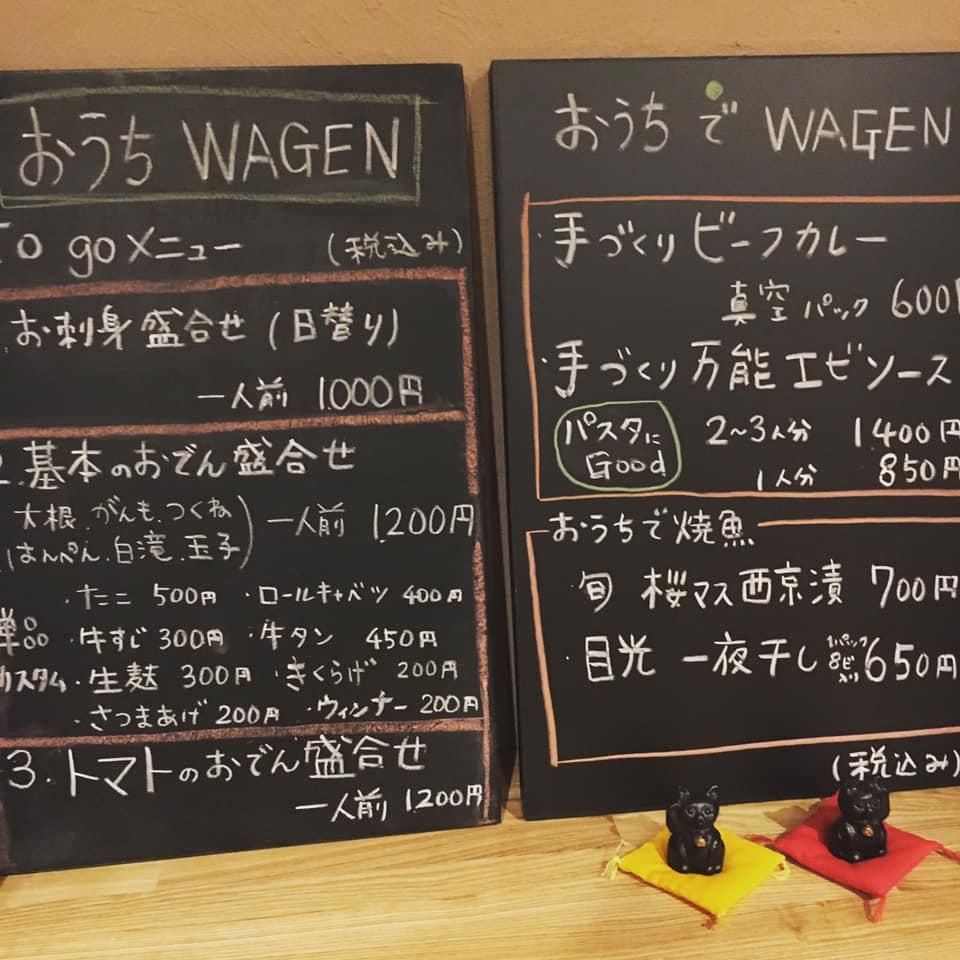 おうち WAGEN
To go メニュー (税込み)
お刺身盛合せ (日替り)
一人前 1.000円
2.基本のおでん盛合せ
大根.がんも.つくね
はんぺん.白滝.玉子) 一人前 1.200円
・たこ 500円 ・ロールキャベツ 400円
単品 ・牛すじ 300円 ・牛タン 450円
カスタム ・生麩 300円 ・きくらげ 200円
・さつまあげ 200円 ・ウィンナー 200円
3.トマトのおでん盛合せ
一人前 1.200円
おうちで WAGEN
・手づくりビーフカレー
真空パック 600円
・手づくり万能エビソース
パスタに
Good
2〜3人分 1400円
1人分 850円
おうちで焼魚
・旬 桜マス西京漬 700円
・目光 一夜干し 1パック 8ピ入 650円
(税込み)